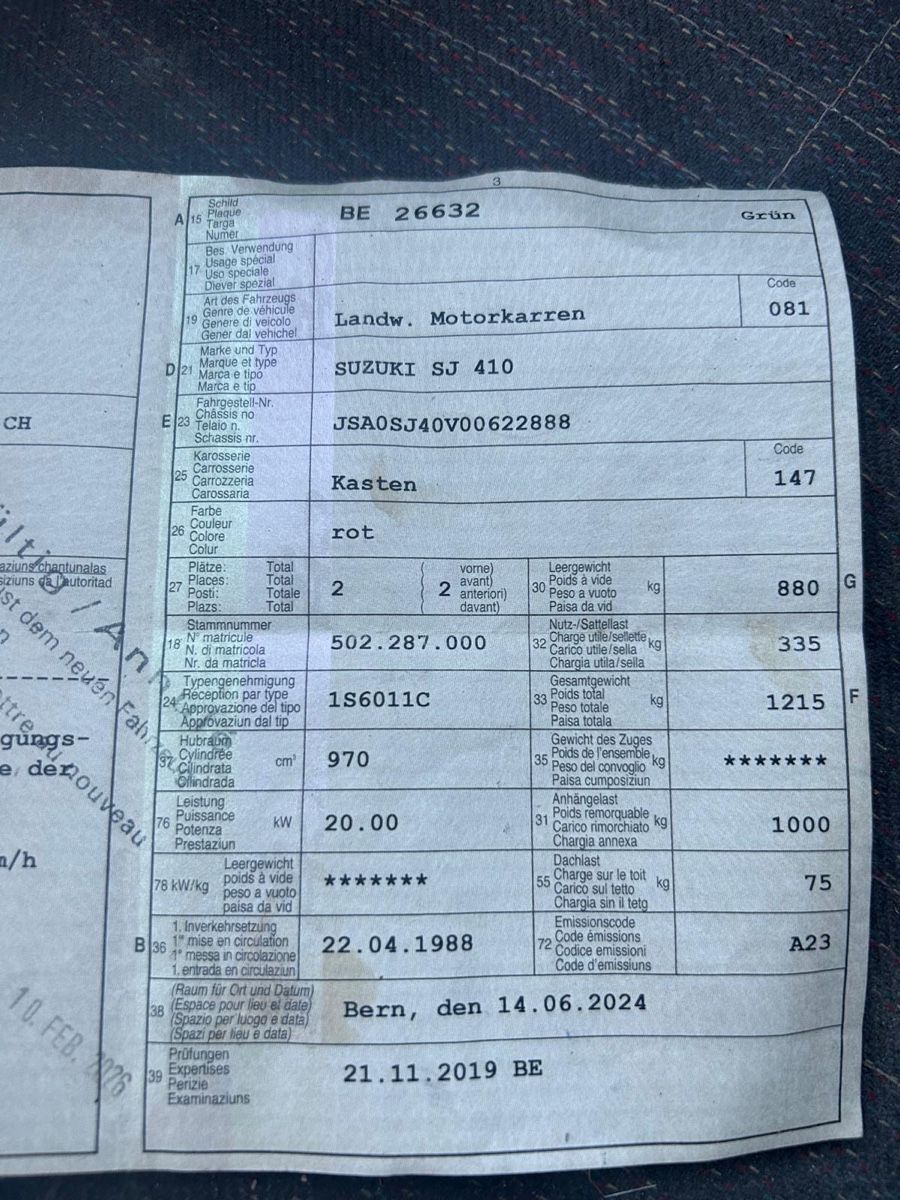 3
A 15 Schild
Plaque
Targa
Numer
BE 26632
Grün
17 Bes. Verwendung
Usage spécial
Uso speciale
Diever spezial
19 Art des Fahrzeugs
Genre de véhicule
Genere di veicolo
Gener dal vehichel
Landw. Motorkarren
Code
081
D 21 Marke und Typ
Marque et type
Marca e tipo
Marca e tip
SUZUKI SJ 410
E 23 Fahrgestell-Nr.
Châssis no
Telaio n.
Schassis nr.
JSA0SJ40V00622888
25 Karosserie
Carrosserie
Carrozzeria
Carossaria
Kasten
Code
147
26 Farbe
Couleur
Colore
Colur
rot
27 Plätze: Total
Places: Total
Posti: Totale
Plazs: Total
2
( 2 vorne)
avant)
anteriori)
davant)
30 Leergewicht
Poids à vide
Peso a vuoto
Paisa da vid
kg
880
G
18 Stammnummer
N° matricule
N. di matricola
Nr. da matricla
502.287.000
32 Nutz-/Sattellast
Charge utile/sellette
Carico utile/sella
Chargia utila/sella
kg
335
24 Typengenehmigung
Réception par type
Approvazione del tipo
Approvaziun dal tip
1S6011C
33 Gesamtgewicht
Poids total
Peso totale
Paisa totala
kg
1215
F
37 Hubraum
Cylindrée
Cilindrata
Cilindrada
cm³
970
35 Gewicht des Zuges
Poids de l'ensemble
Peso del convoglio
Paisa cumposiziun
kg
*******
76 Leistung
Puissance
Potenza
Prestaziun
kW
20.00
31 Anhängelast
Poids remorquable
Carico rimorchiato
Chargia annexa
kg
1000
78 kW/kg Leergewicht
poids à vide
peso a vuoto
paisa da vid
*******
55 Dachlast
Charge sur le toit
Carico sul tetto
Chargia sin il tetg
kg
75
B 36 1. Inverkehrsetzung
1re mise en circulation
1a messa in circolazione
1. entrada en circulaziun
22.04.1988
72 Emissionscode
Code émissions
Codice emissioni
Code d'emissiuns
A23
38 (Raum für Ort und Datum)
(Espace pour lieu et date)
(Spazio per luogo e data)
(Spazi per lieu e data)
Bern, den 14.06.2024
39 Prüfungen
Expertises
Perizie
Examinaziuns
21.11.2019 BE
CH
aziuns chantunalas
siziuns da l'autoritad
gungs-
e, der
m/h
ültig / An
st dem neuen Fahrze
ttre au nouveau
10. FEB. 2026